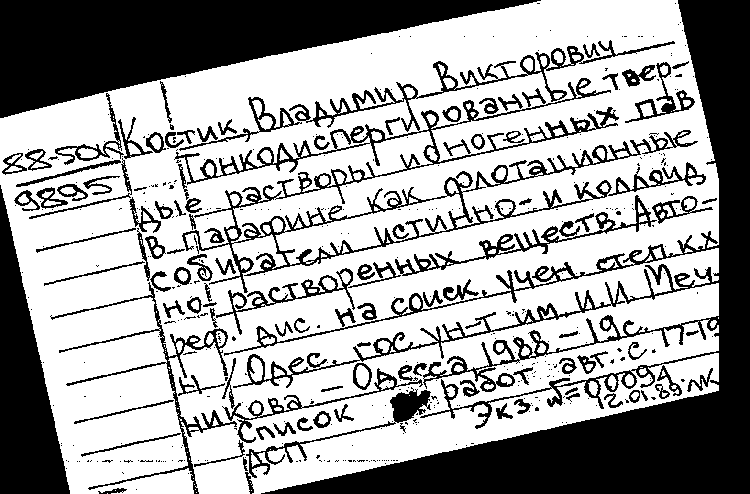 88-50к
9895
Костик, Владимир Викторович
Тонкодиспергированные твер-
дые растворы ионогенных пав
в парафине как флотационные
собиратели истинно- и коллоид-
но- растворенных веществ: Авто-
реф. дис. на соиск. учен. степ. к.х.
н / Одес. гос. ун-т им. И.И. Меч-
никова. – Одесса 1988 – 19с.
Список работ авт.: с. 17-19
Экз. №=00094
ДСП.
12.01.89